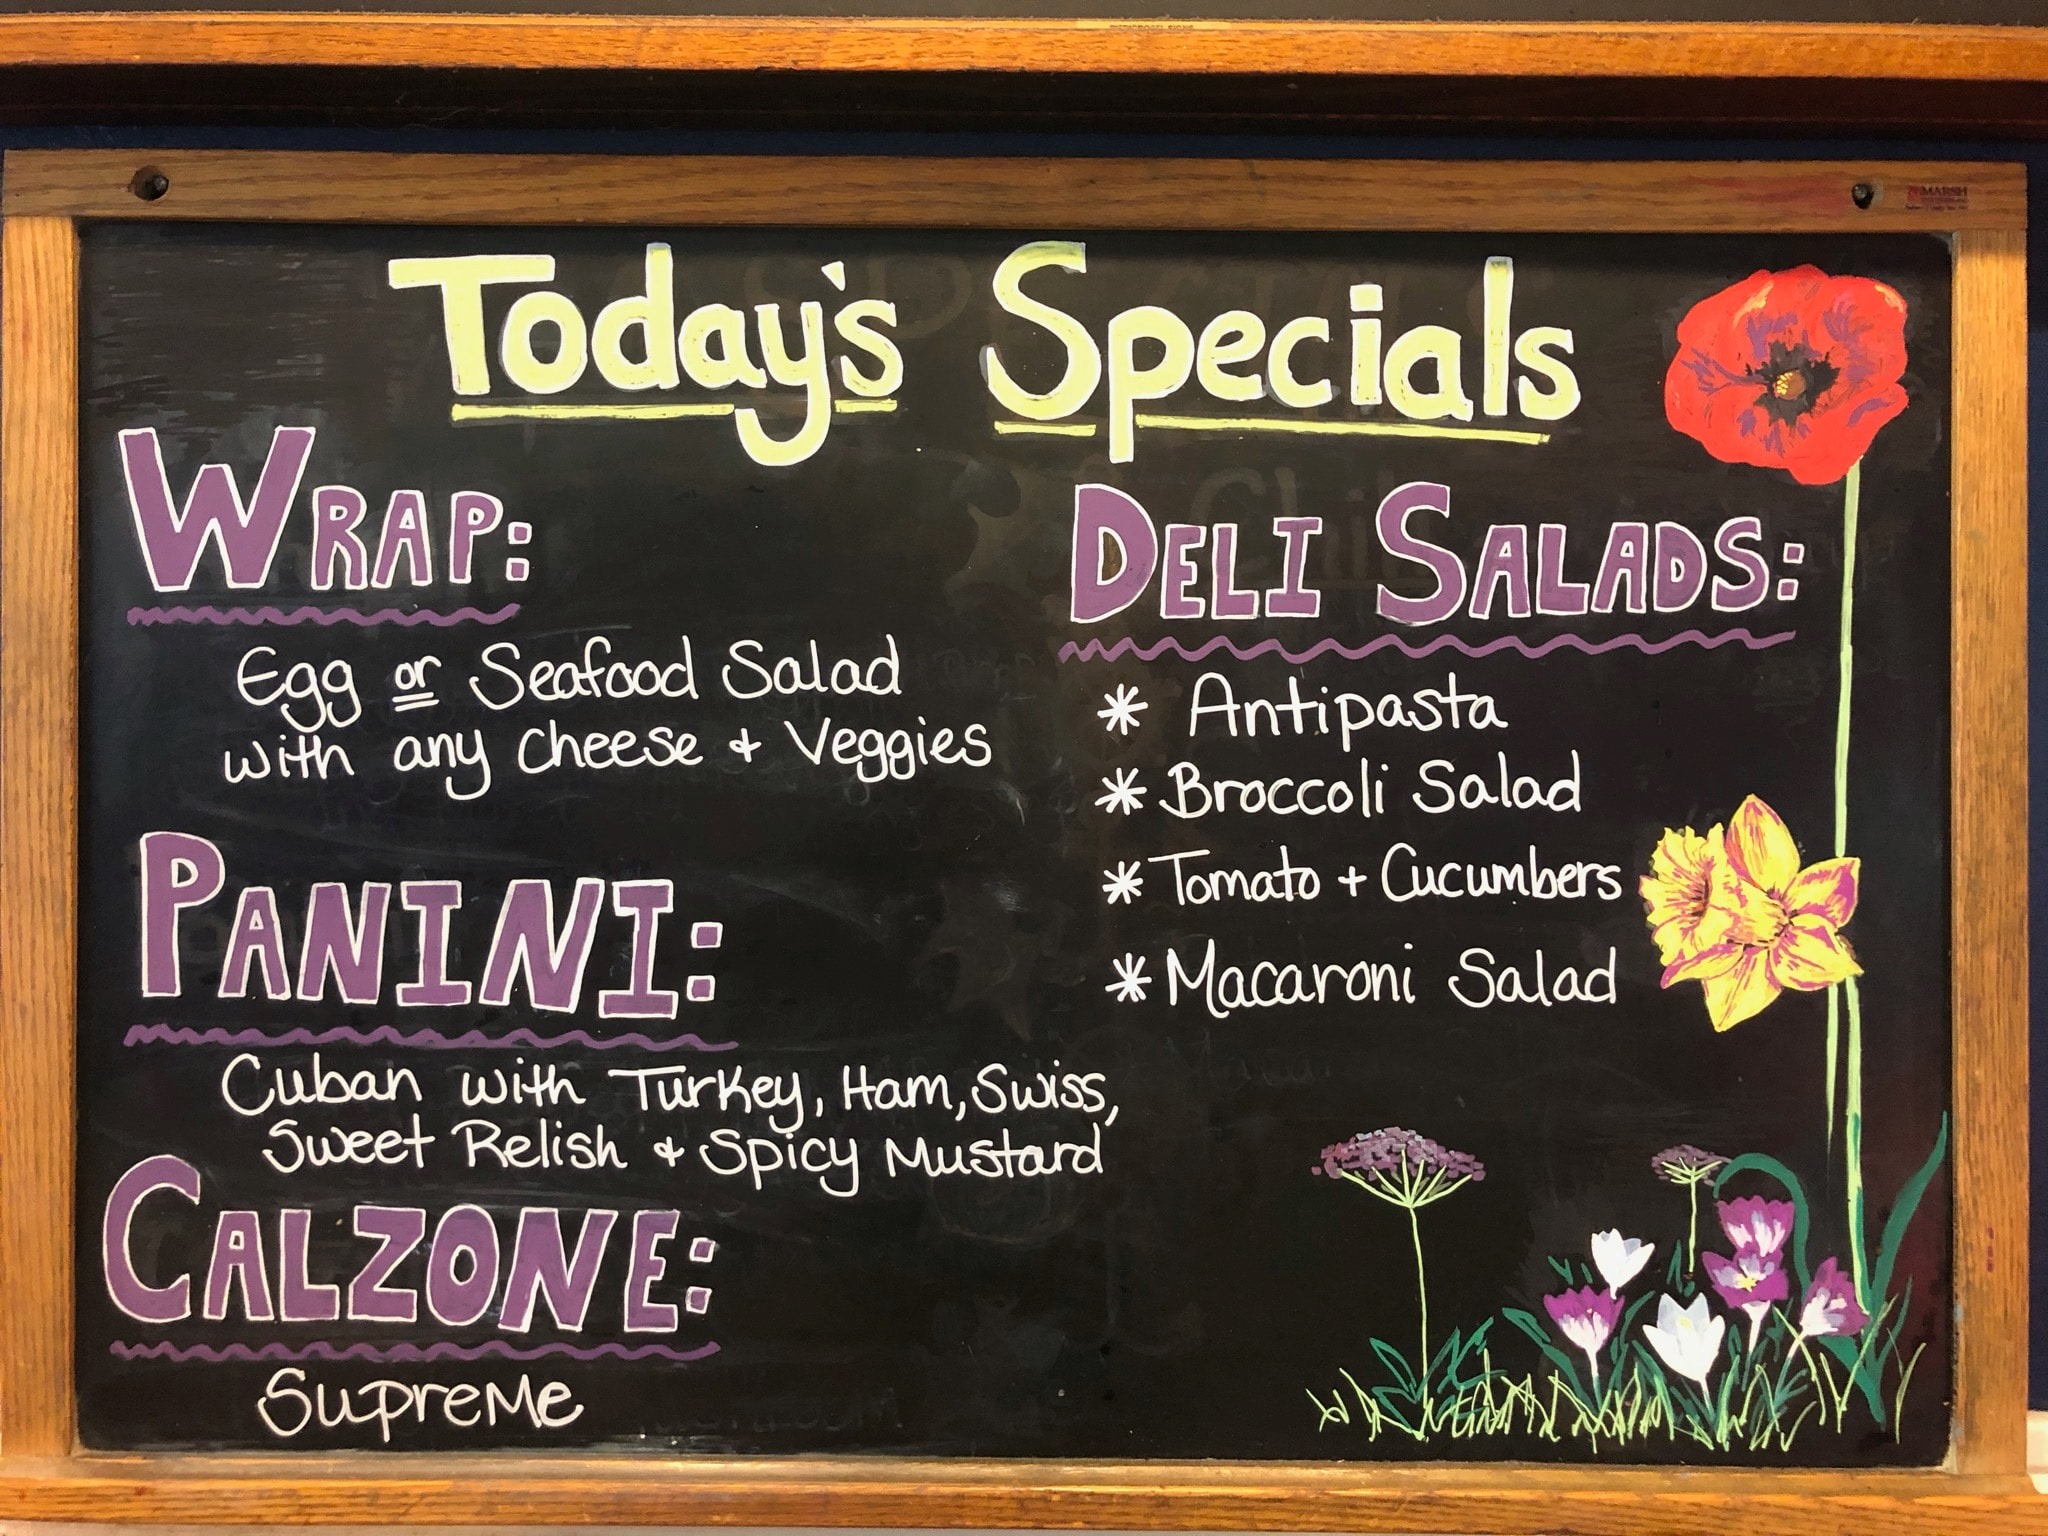 Today's Specials
WRAP:
Egg or Seafood Salad
with any cheese + Veggies
PANINI:
Cuban with Turkey, Ham, Swiss,
Sweet Relish + Spicy Mustard
CALZONE:
Supreme
DELI SALADS:
* Antipasta
* Broccoli Salad
* Tomato + Cucumbers
* Macaroni Salad
MARSH